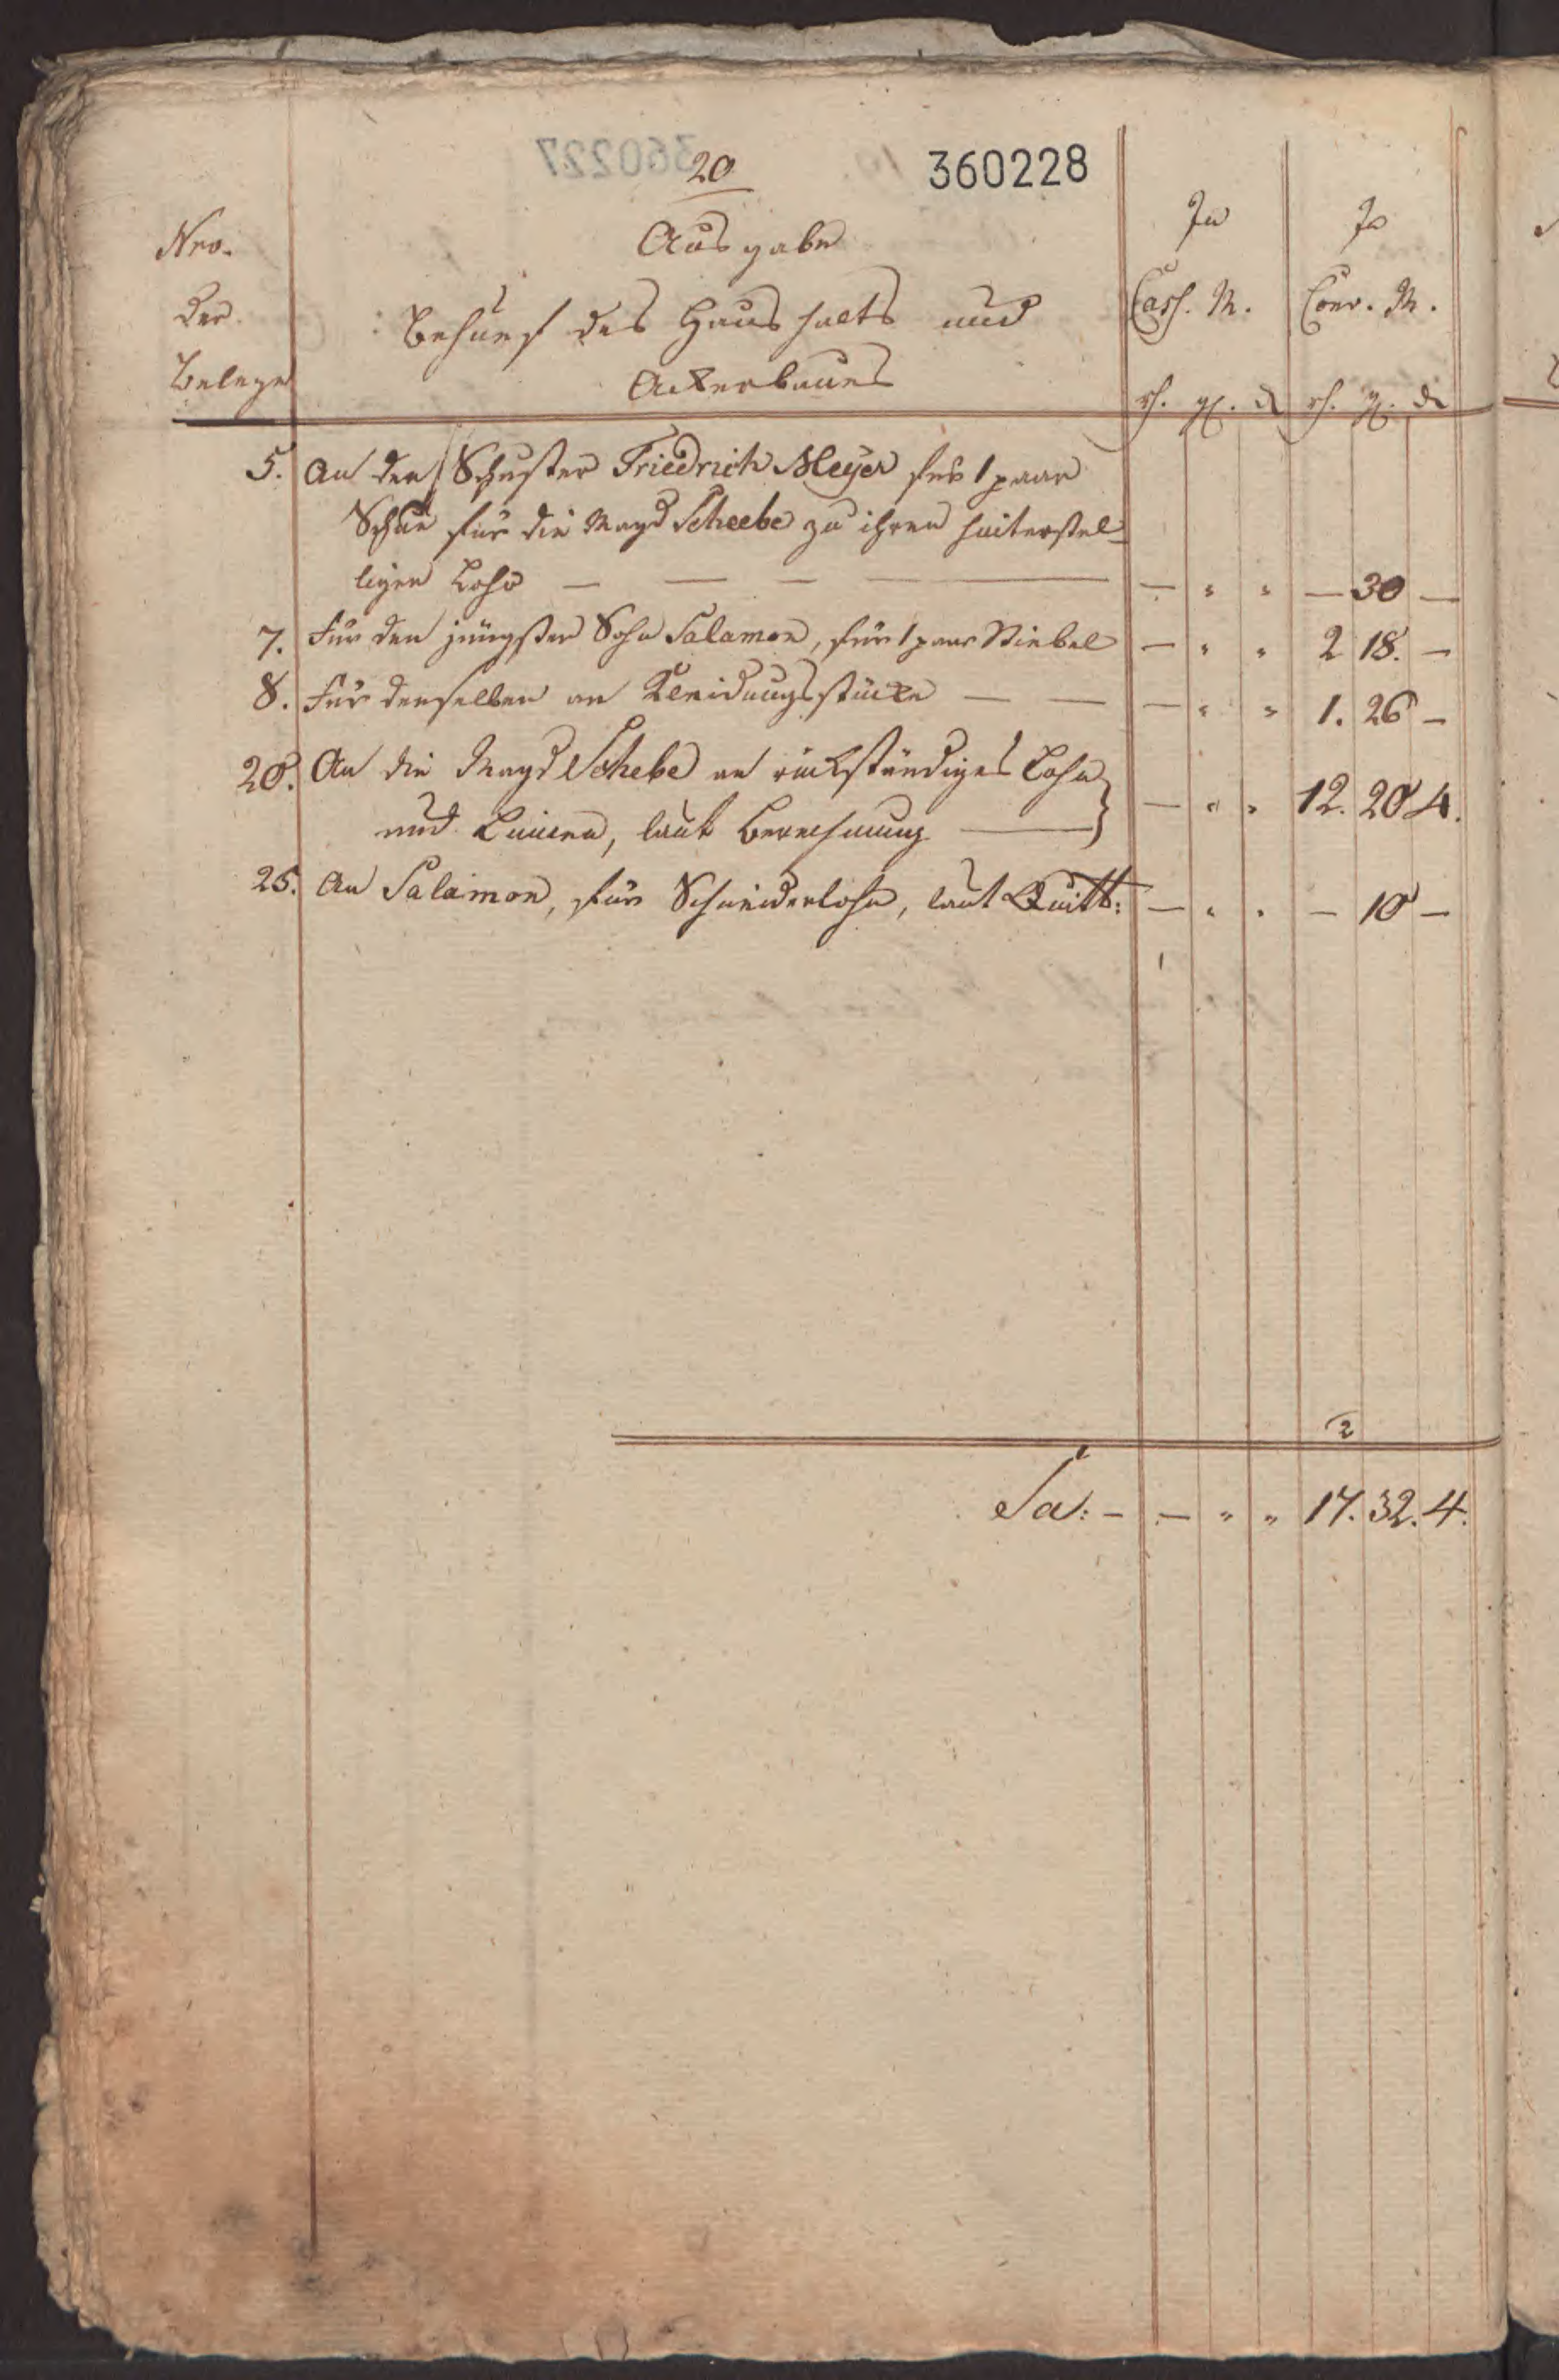 20
360228
Nro.
der
Belege
Ausgabe
Behuef des Haushalts und
Ackerbaues
In
Cass. M.
In
Conv. M.
5. An den Schuster Friedrich Meyer für 1 paar
Schue für die Magd Scheebe zu ihren hinterstel-
ligen Lohn — — — — — " " — 30 —
7. Für den jüngsten Sohn Salamon, für 1 paar Stiebel — " " 2 18. —
8. Für denselben an Kleidungsstücke — — — " " 1. 26 —
20. An die Magd Schebe an rückständiges Lohn
und Linnen, laut Berechnung — — " " 12. 20 4.
25. An Salamon, für Schneiderlohn, laut Quitt: — " " — 10 —
2
Sa: — — " " 17. 32. 4.